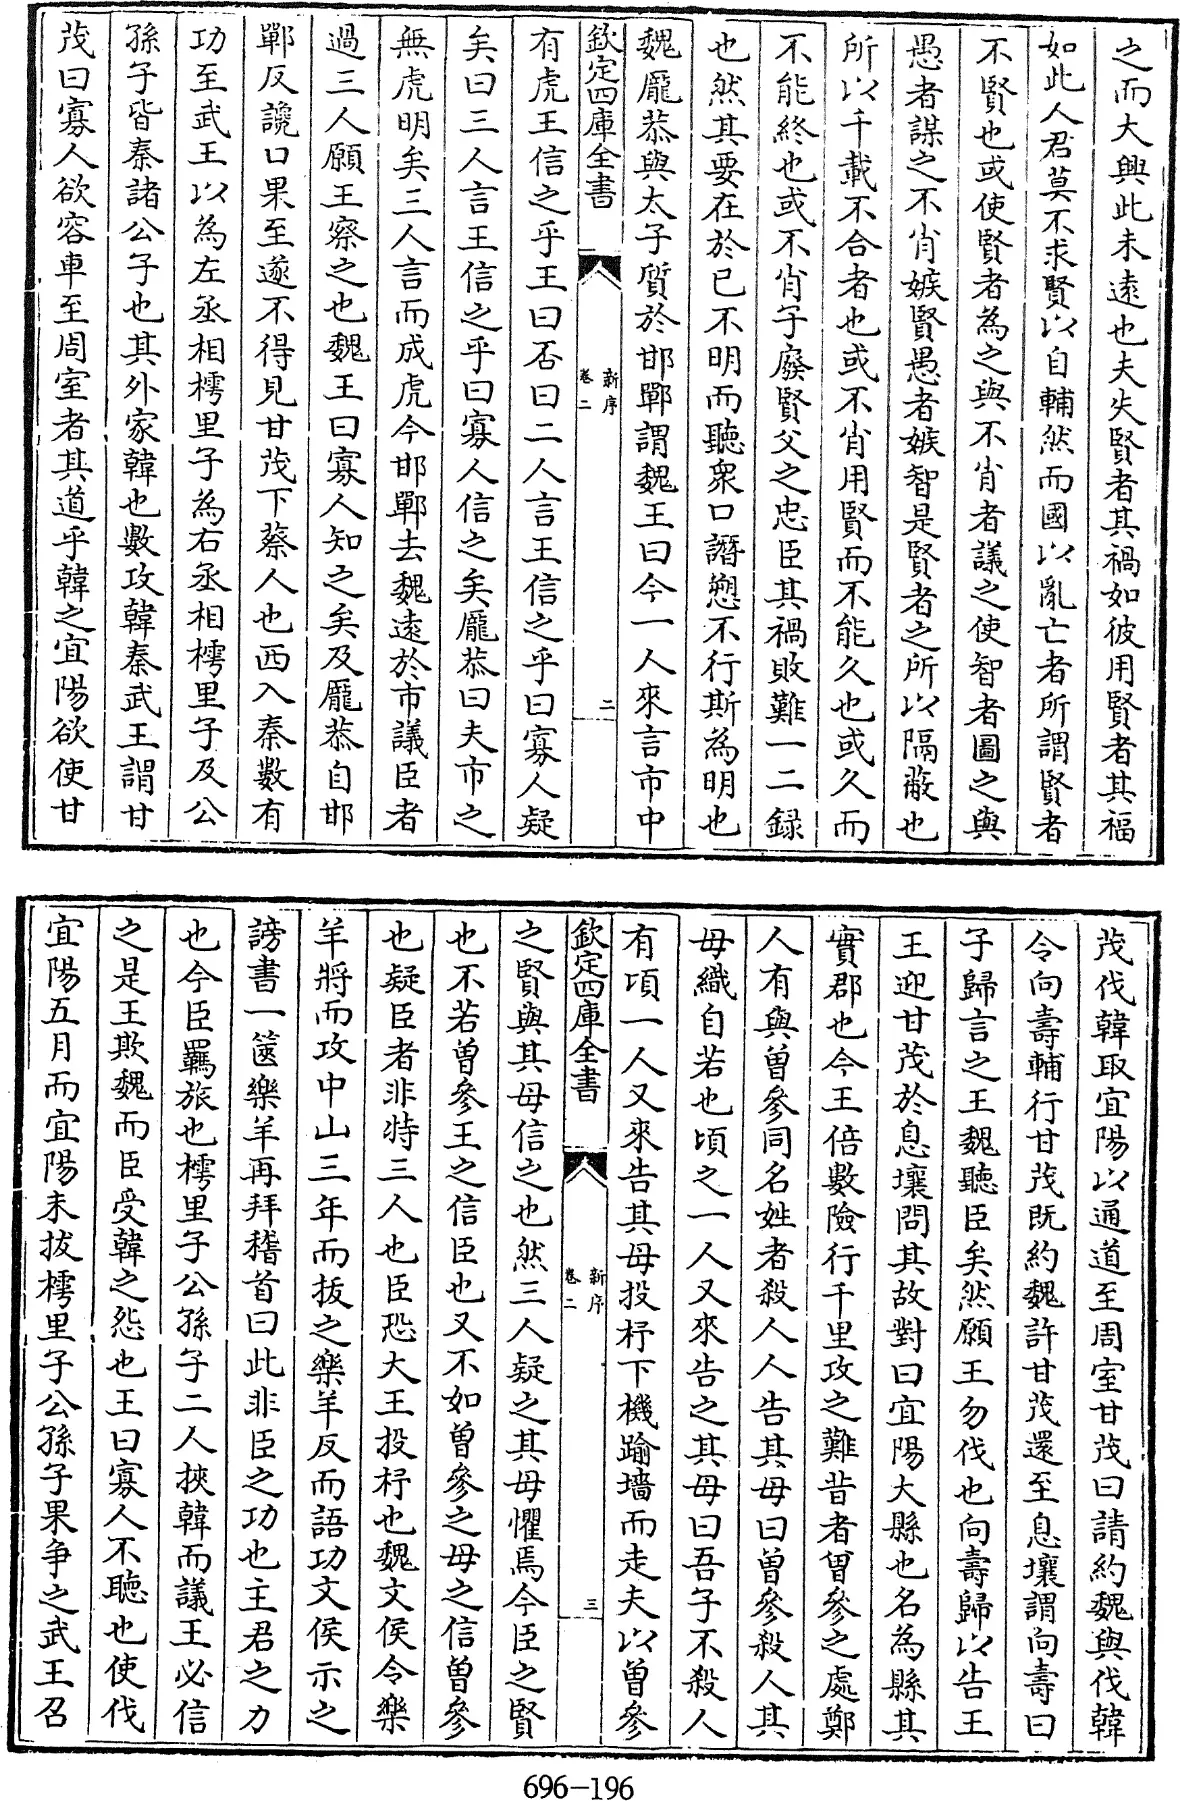 之而大興此未逺也夫失賢者其禍如彼用賢者其福
如此人君莫不求賢以自輔然而國以亂亡者所謂賢者
不賢也或使賢者為之與不肖者議之使智者圖之與
愚者謀之不肖嫉賢愚者嫉智是賢者之所以隔蔽也
所以千載不合者也或不肖用賢而不能久也或久而
不能終也或不肖子廢賢父之忠臣其禍敗難一二録
也然其要在於已不明而聽衆口譖愬不行斯為明也
魏龐恭與太子質於邯鄲謂魏王曰今一人來言市中
欽定四庫全書
新序
卷二
二
有虎王信之乎王曰否曰二人言王信之乎曰寡人疑
矣曰三人言王信之乎曰寡人信之矣龐恭曰夫市之
無虎明矣三人言而成虎今邯鄲去魏逺於市議臣者
過三人願王察之也魏王曰寡人知之矣及龐恭自邯
鄲反讒口果至遂不得見甘茂下蔡人也西入秦數有
功至武王以為左丞相樗里子為右丞相樗里子及公
孫子皆秦諸公子也其外家韓也數攻韓秦武王謂甘
茂曰寡人欲容車至周室者其道乎韓之宜陽欲使甘
茂伐韓取宜陽以通道至周室甘茂曰請約魏與伐韓
令向壽輔行甘茂既約魏許甘茂還至息壤謂向壽曰
子歸言之王魏聽臣矣然願王勿伐也向壽歸以告王
王迎甘茂於息壤問其故對曰宜陽大縣也名為縣其
實郡也今王倍數險行千里攻之難昔者曾參之處鄭
人有與曾參同名姓者殺人人告其母曰曾參殺人其
母織自若也頃之一人又來告之其母曰吾子不殺人
有頃一人又來告其母投杼下機踰墻而走夫以曾參
欽定四庫全書
新序
卷二
三
之賢與其母信之也然三人疑之其母懼焉今臣之賢
也不若曾參王之信臣也又不如曾參之母之信曾參
也疑臣者非特三人也臣恐大王投杼也魏文侯令樂
羊將而攻中山三年而拔之樂羊反而語功文侯示之
謗書一篋樂羊再拜稽首曰此非臣之功也主君之力
也今臣羈旅也樗里子公孫子二人挾韓而議王必信
之是王欺魏而臣受韓之怨也王曰寡人不聽也使伐
宜陽五月而宜陽未拔樗里子公孫子果争之武王召
696-196